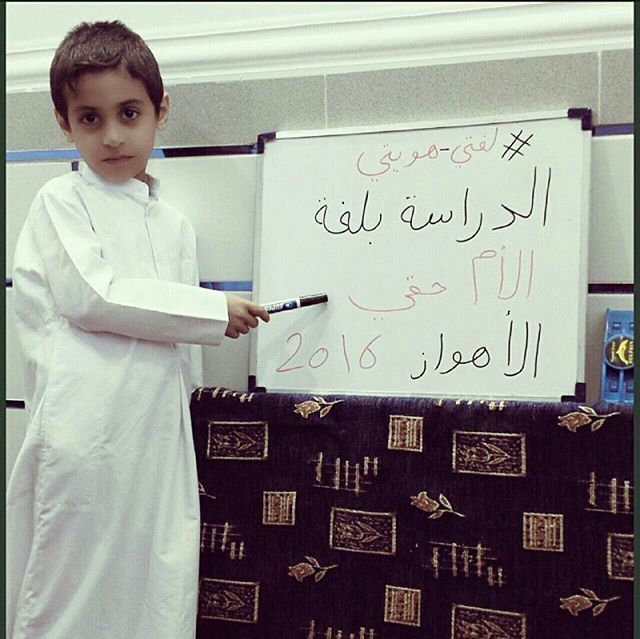 #لغتي-هويتي
الدراسة بلغة
الأم حقي
الأهواز 2016